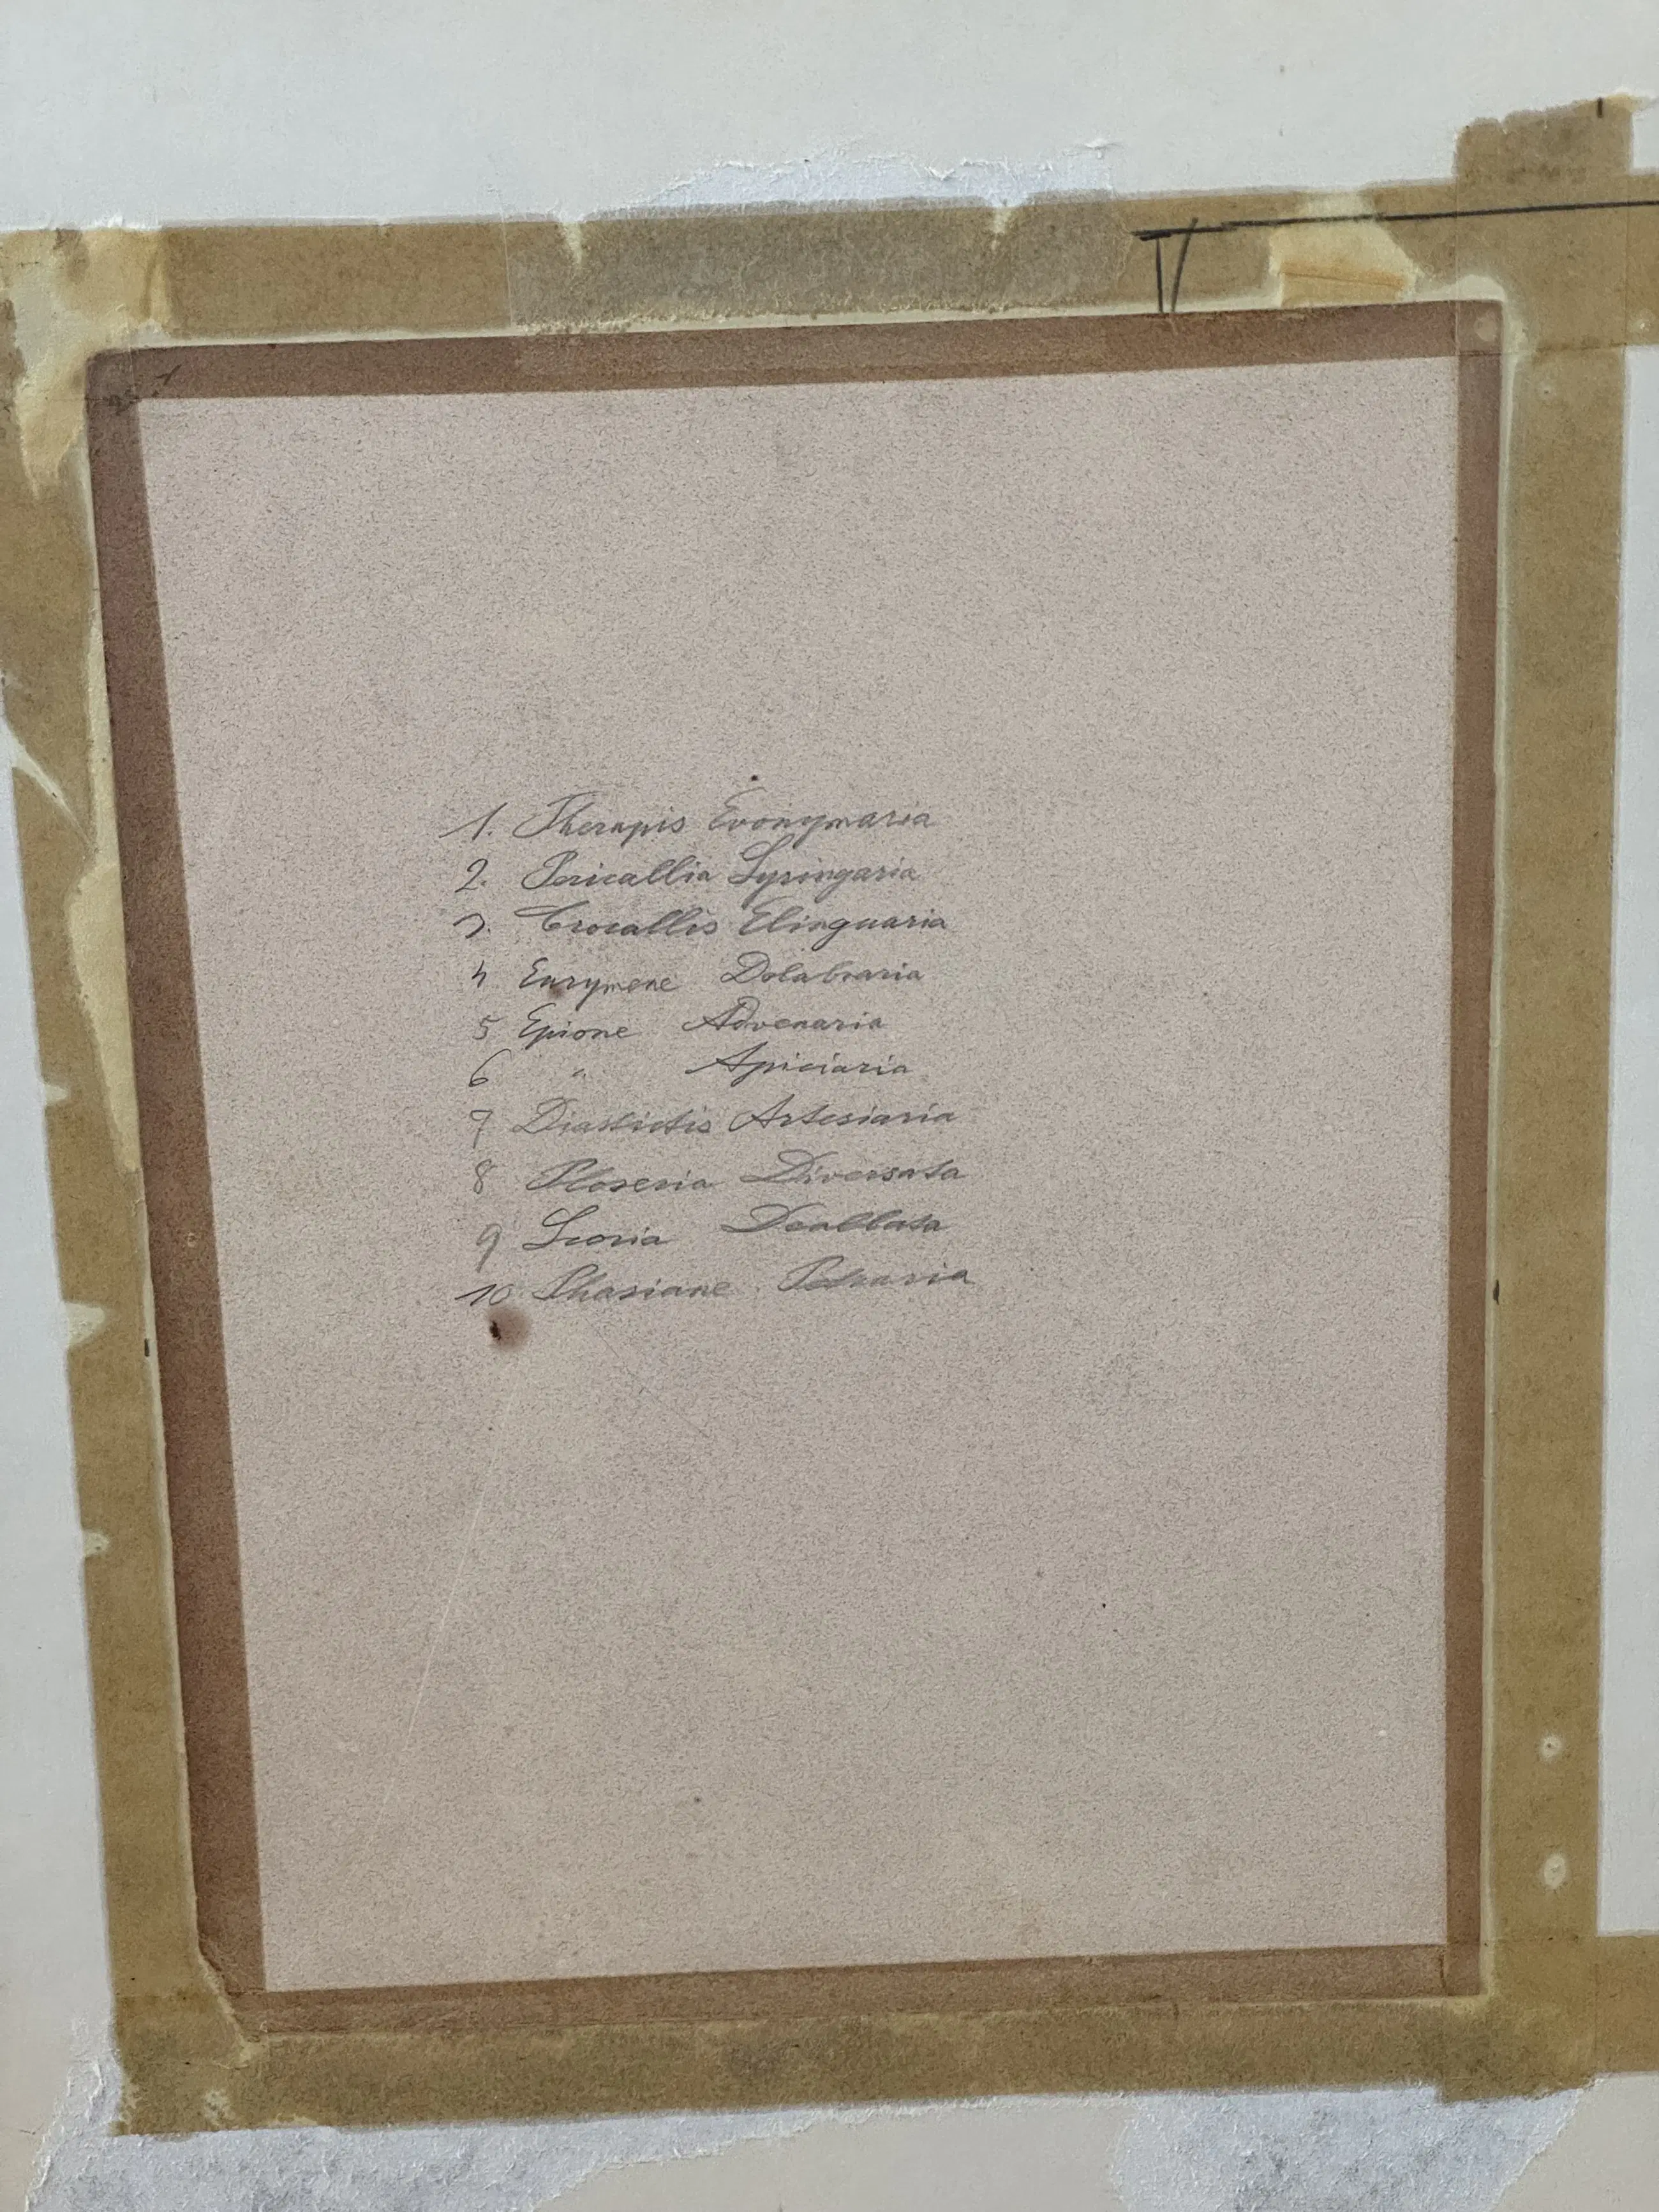 IV
1
1. Therapis Evonymaria
2. Pericallia Syringaria
3. Crocallis Elinguaria
4 Eurymene Dolabraria
5 Epione Advenaria
6 " Apiciaria
7 Diastictis Artesiaria
8 Ploseria Diversata
9 Scoria Dealbata
10 Phasiane Petraria